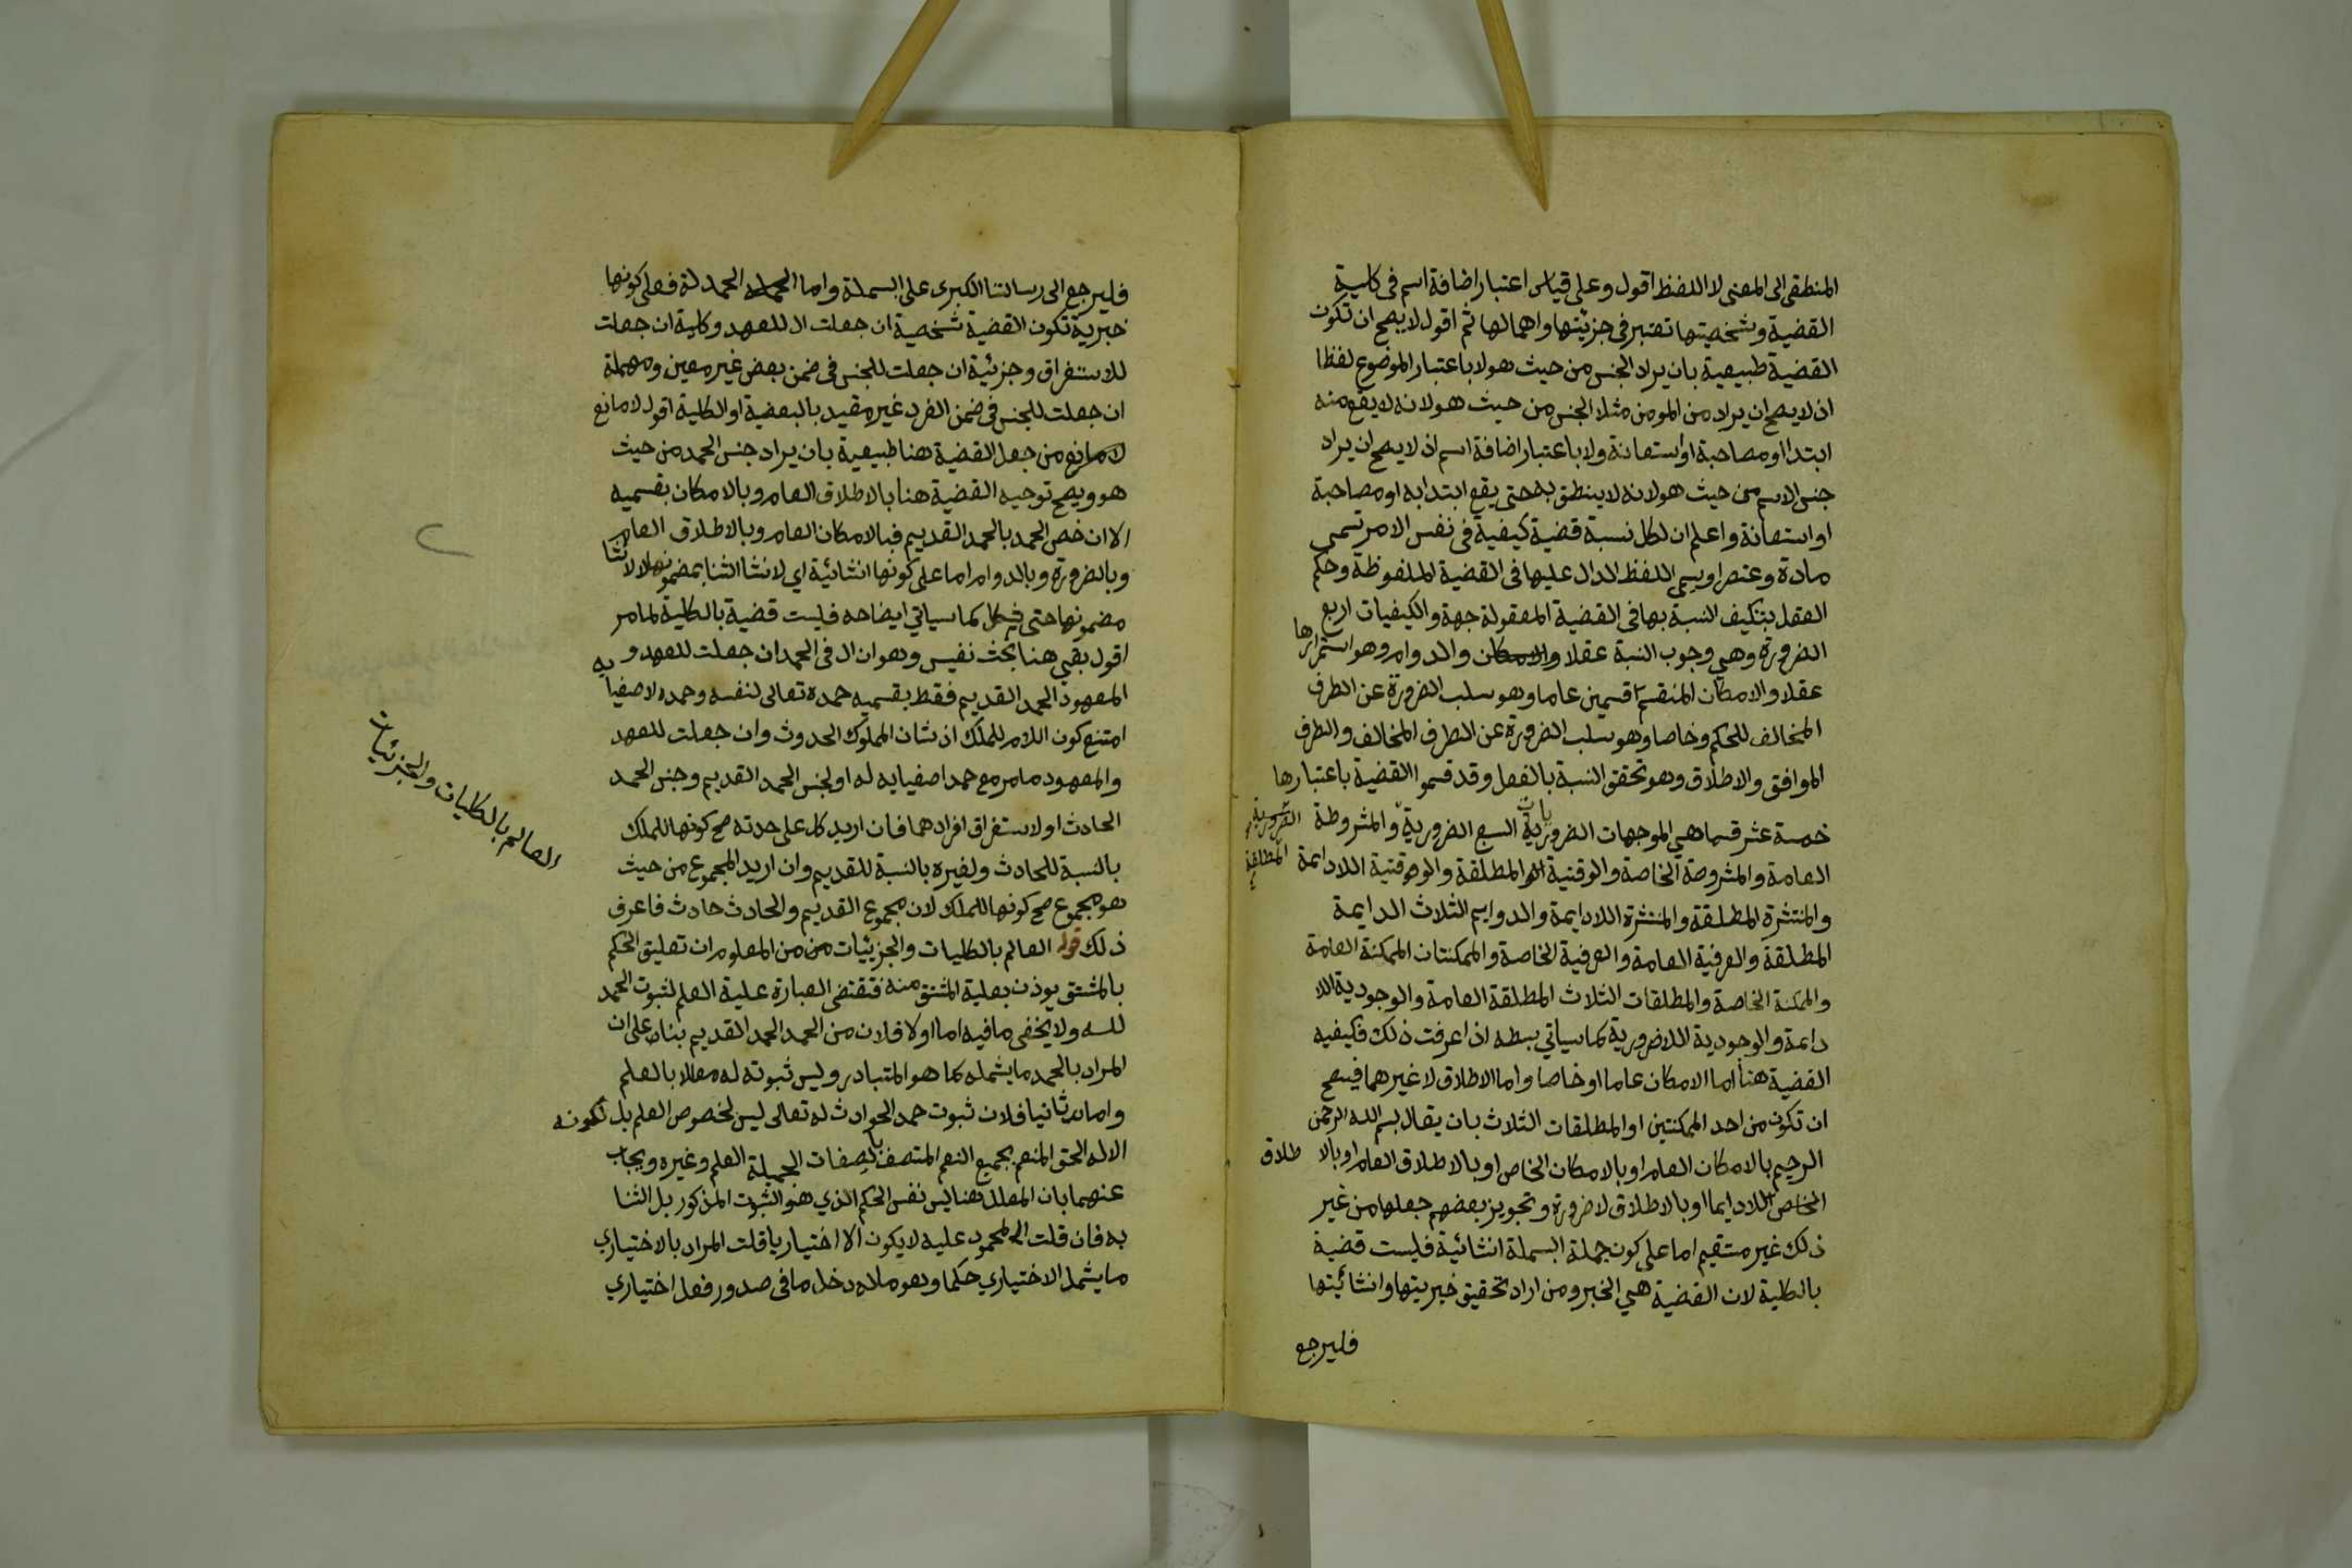 المنطقي الى المعنى لا اللفظ اقول وعلى قياس اعتبار اضافة اسم في كلية
القضية وشخصيتها تعتبر في جزئيتها واهمالها ثم اقول لا يصح ان تكون
القضية طبيعية بان يراد الجنس من حيث هو لا باعتبار الموضوع لفظا
اذ لا يصح ان يراد من المومن مثلا الجنس من حيث هو لانه لا يقع منه
ابتدا او مصاحبة او استعانة ولا باعتبار اضافة اسم اذ لا يصح ان يراد
جنس الاسم من حيث هو لانه لا ينطق به حتى يقع ابتدا به او مصاحبة
او استعانة واعلم ان لكل نسبة قضية كيفية في نفس الامر تسمى
مادة وعنصرا ويسمى اللفظ الدال عليها في القضية الملفوظة وحكم
العقل بتكيف النسبة بها في القضية المعقولة جهة والكيفيات اربع
الضرورة وهي وجوب النسبة عقلا والامكان والدوام وهو استمرارها
عقلا والامكان المنقسم قسمين عاما وهو سلب الضرورة عن الطرف
المخالف للحكم وخاصا وهو سلب الضرورة عن الطرف المخالف والطرف
الموافق والاطلاق وهو تحقق النسبة بالفعل وقد قسموا القضية باعتبارها
خمسة عشر قسما هي الموجهات الضروريات السبع الضرورية والمشروطة
الضرورية المطلقة
العامة والمشروطة الخاصة والوقتية المطلقة والوقتية اللادايمة
والمنتشرة المطلقة والمنتشرة اللادايمة والدوايم الثلاث الدايمة
المطلقة والعرفية العامة والعرفية الخاصة والممكنتان الممكنة العامة
والممكنة الخاصة والمطلقات الثلاث المطلقة العامة والوجودية اللا
دايمة والوجودية اللاضرورية كما سياتي بسطه اذا عرفت ذلك فكيفيه
القضية هنا اما الامكان عاما او خاصا واما الاطلاق لا غيرهما فيصح
ان تكون من احد الممكنتين او المطلقات الثلاث بان يقال بسم الله الرحمن
الرحيم بالامكان العام او بالامكان الخاص او بالاطلاق العام او بالا طلاق
الخاص اللادايما او بالاطلاق لا ضرورة وتجويز بعضهم جعلها من غير
ذلك غير مستقيم اما على كون جملة البسملة انشائية فليست قضية
بالكلية لان القضية هي الخبر ومن اراد تحقيق خبريتها وانشائيتها
فليرجع
فليرجع الى رسالتنا الكبرى على البسملة واما الحمدلة الحمدلة فعلى كونها
خبرية تكون القضية شخصية ان جعلت ال للعهد وكلية ان جعلت
للاستغراق وجزئية ان جعلت للجنس في ضمن بعض غير معين ومهملة
ان جعلت للجنس في ضمن الفرد غير مقيد بالبعضية او الكلية اقول لا مانع
لا مانع من جعل القضية هنا طبيعية بان يراد جنس الحمد من حيث
هو ويصح توجيه القضية هنا بالاطلاق العام وبالامكان بقسميه
الا ان خص الحمد بالحمد القديم فبالامكان العام وبالاطلاق العام
وبالضرورة وبالدوام اما على كونها انشائية اي لانشا الثنا بمضمونها لا لانشا
مضمونها حتى يشكل كما سياتي ايضاحه فليست قضية بالكلية لما مر
اقول بقي هنا بحث نفيس وهو ان ال في الحمد ان جعلت للعهد و
المعهود الحمد القديم فقط بقسميه حمده تعالى لنفسه وحمده لاصفيايه
امتنع كون اللام للملك اذ شان المملوك الحدوث وان جعلت للعهد
والمعهود ما مر مع حمد اصفيايه له او لجنس الحمد القديم وجنس الحمد
الحادث او لاستغراق افرادهما فان اريد كل على حدته صح كونها للملك
بالنسبة للحادث ولغيره بالنسبة للقديم وان اريد المجموع من حيث
هو مجموع صح كونها للملك لان مجموع القديم والحادث حادث فاعرف
ذلك قوله العالم بالكليات والجزئيات من المعلوم ان تعليق الحكم
بالمشتق يوذن بعلية المشتق منه فتقتضي العبارة علية العلم لثبوت الحمد
لله ولا يخفى ما فيه اما اولا فلان من الحمد الحمد القديم بناء على ان
المراد بالحمد ما يشمله كما هو المتبادر وليس ثبوته له معللا بالعلم
واما ثانيا فلان ثبوت حمد الحوادث له تعالى ليس لخصوص العلم بل لكونه
الاله الحق المنعم بجميع النعم المتصف بالصفات الجميلة العلم وغيره ويجاب
عنهما بان المعلل هنا ليس نفس الحكم الذي هو الثبوت المذكور بل الثنا
به فان قلت المحمود عليه لا يكون الا اختياريا قلت المراد بالاختياري
ما يشمل الاختياري حكما وهو ما له دخل ما في صدور فعل اختياري
العالم بالكليات والجزئيات